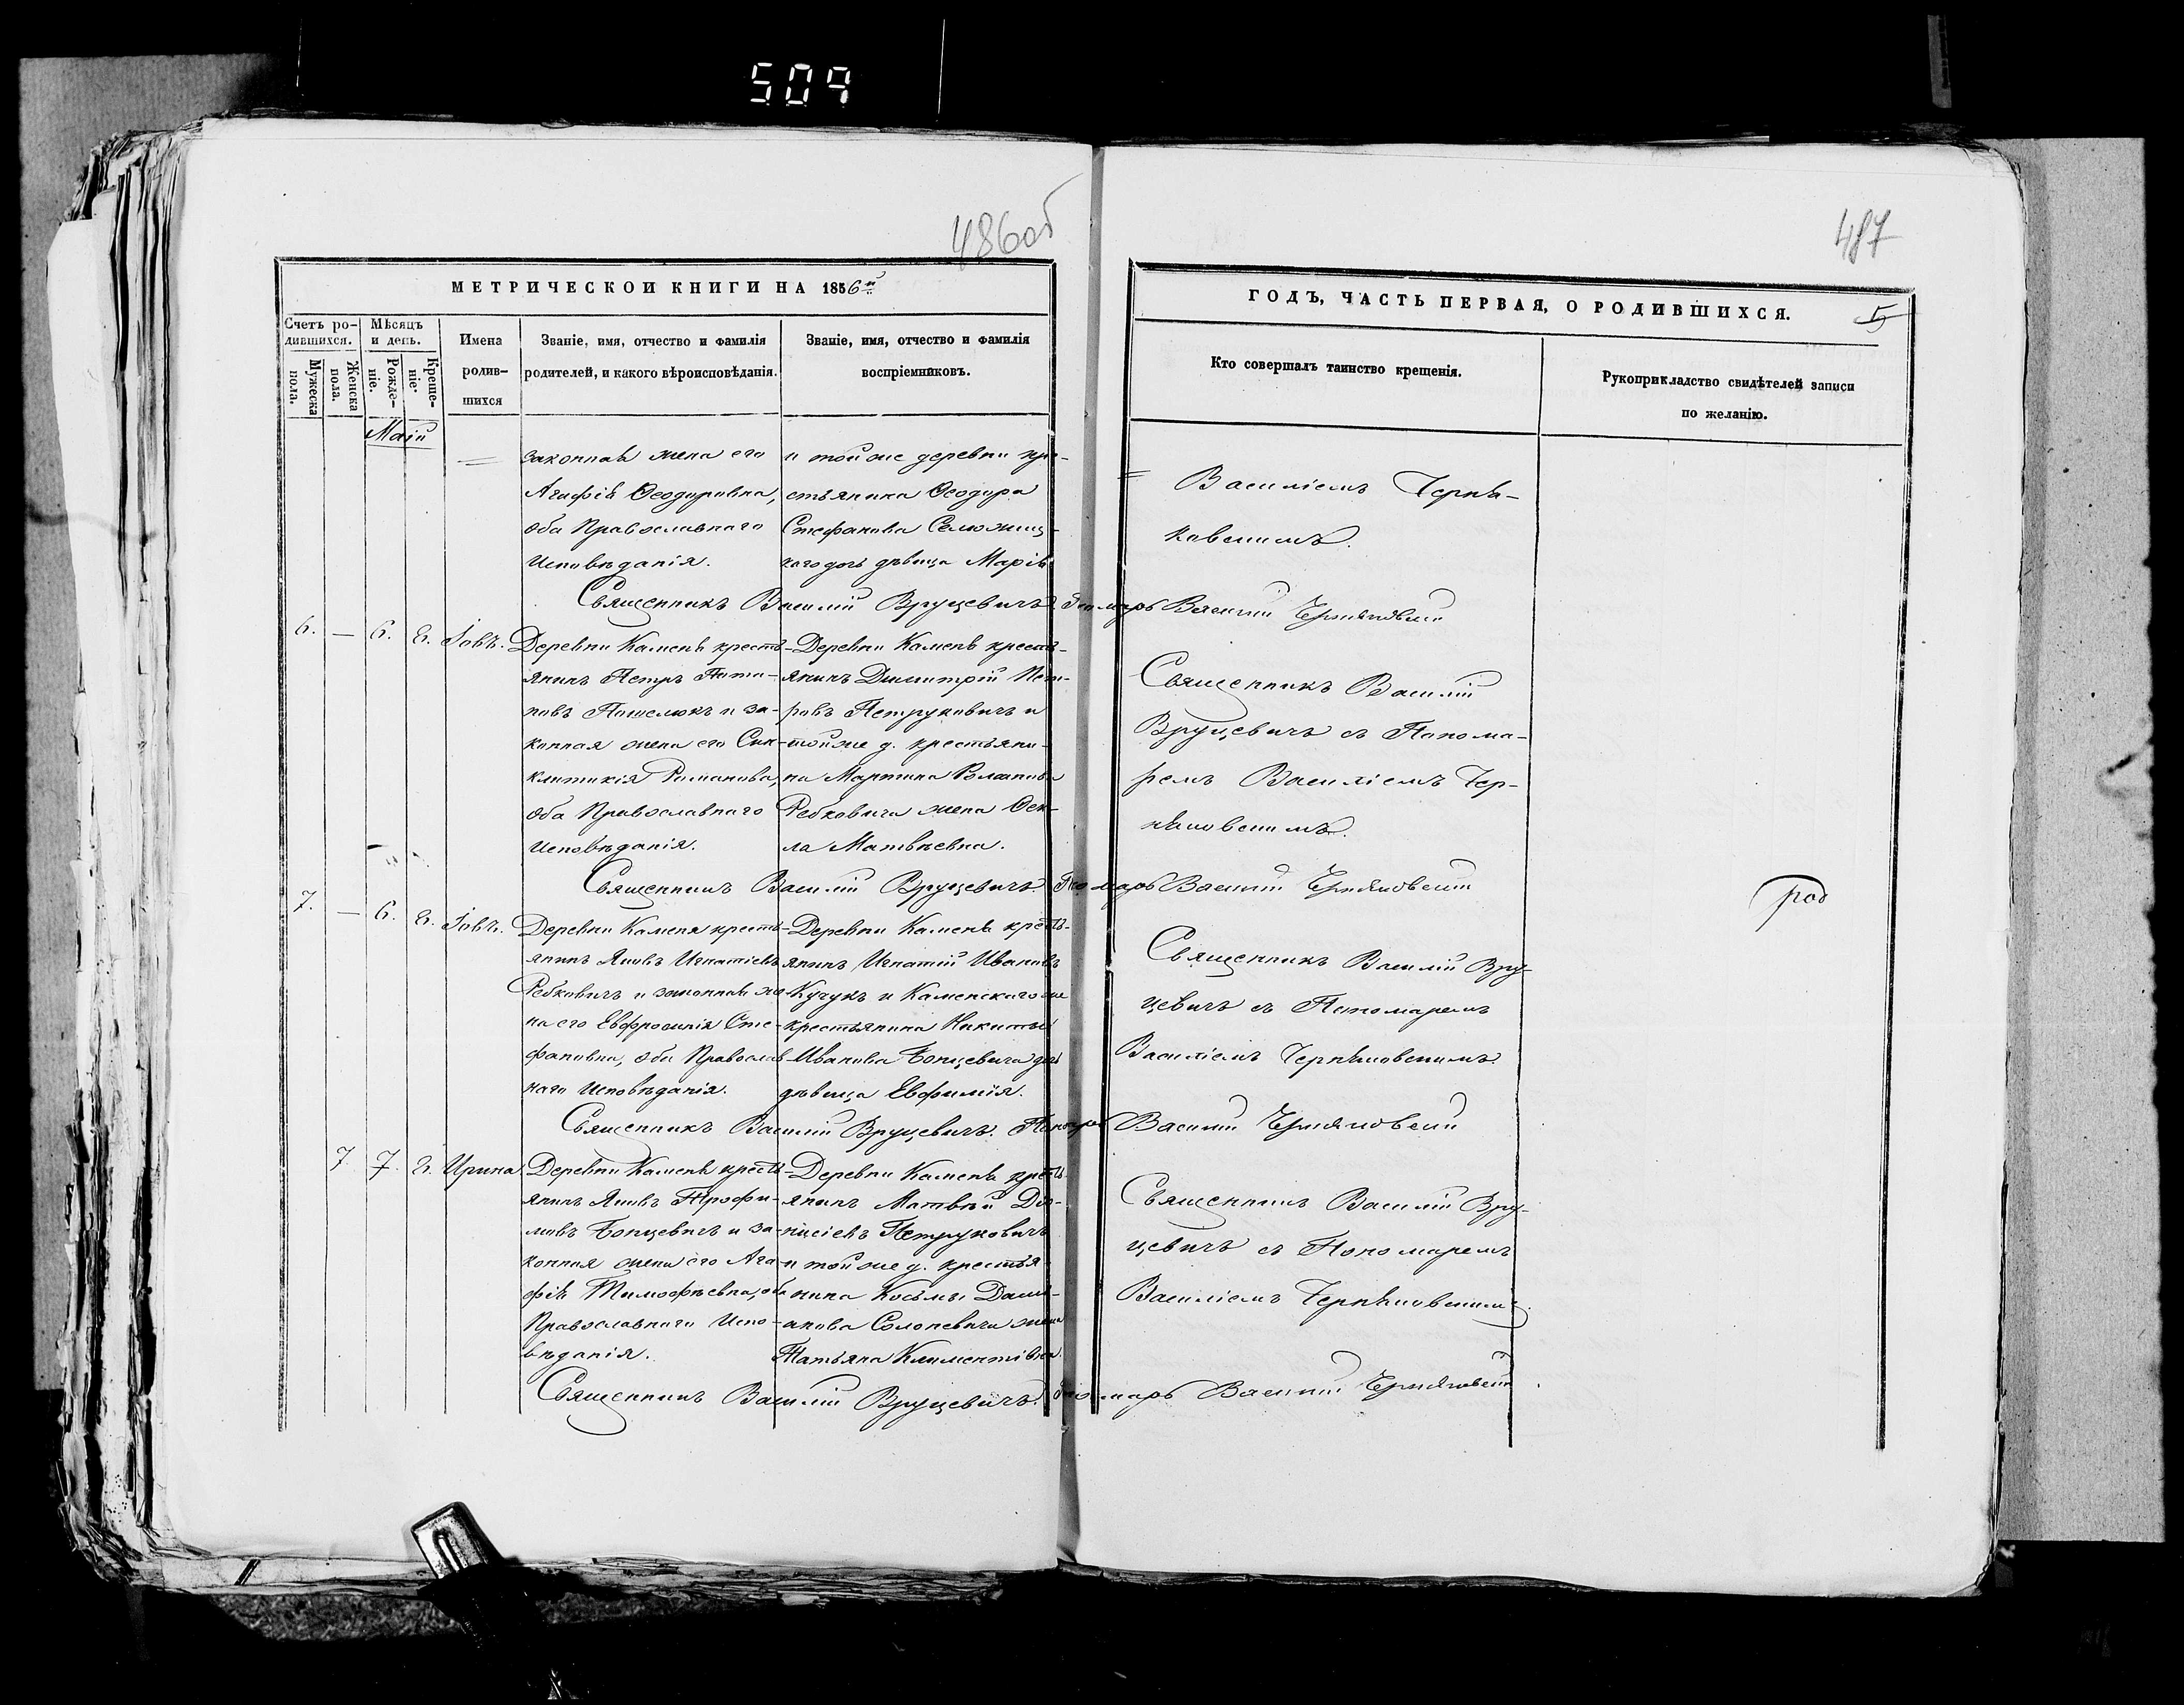 509
486об
487
МЕТРИЧЕСКОИ КНИГИ НА 1856й
ГОДЪ, ЧАСТЬ ПЕРВАЯ, О РОДИВШИХСЯ.
5
Счетъ ро-
дившихся.
Мужеска
пола.
Женска
пола.
Мѣсяцъ
и день.
Рожде-
ніе.
Креще-
ніе.
Имена
родив-
шихся
Званіе, имя, отчество и фамилія
родителей, и какого вѣроисповѣданія.
Званіе, имя, отчество и фамилія
воспріемниковъ.
Кто совершалъ таинство крещенія.
Рукоприкладство свидѣтелей записи
по желанію.
Маій
законная жена его
Агафія Ѳеодоровна,
оба Православнаго
Исповѣданія.
и той же деревни кре-
стьянина Ѳеодора
Стефанова
дочь дѣвица Марія
Василіемъ Черня-
ковскимъ.
Священникъ Василій Вруцевичъ. Пономарь Василій Черняковскій
6. — 6. 8. Іовъ.
Деревни Камень кресть-
янинъ Петръ Пота-
повъ и за-
конная жена его Син-
клитикія Романова,
оба Православнаго
Исповѣданія.
Деревни Камень кресть-
янинъ Димитрій Пет-
ровъ Петруковичъ и
той же д. крестьяни-
на Мартина Романова
Ребковича жена Ѳек-
ла Матвѣевна.
Священникъ Василій
Вруцевичъ съ Понома-
ремъ Василіемъ Чер-
няковскимъ.
Священникъ Василій Вруцевичъ. Пономарь Василій Черняковскій
род
7. — 6. 8. Іовъ.
Деревни Каменя кресть-
янинъ Яковъ Игнатіевъ
Ребковичъ и законная же-
на его Евфросинія Сте-
фановна, оба Православ-
наго Исповѣданія.
Деревни Камень кресть-
янинъ Игнатій Ивановъ
Кучукъ и Каменскаго же
крестьянина Никиты
Иванова Бонцевича дочь
дѣвица Евфимія.
Священникъ Василій Вру-
цевичъ съ Пономаремъ
Василіемъ Черняковскимъ.
Священникъ Василій Вруцевичъ. Пономарь Василій Черняковскій
7. 7. 8. Ирина
Деревни Камень кресть-
янинъ Яковъ Трофи-
мовъ Бонцевичъ и за-
конная жена его Ага-
фія Тимофѣевна, оба
Православнаго Испо-
вѣданія.
Деревни Камень кресть-
янинъ Матвѣй Діо-
нисіевъ Петруковичъ
и той же д. крестья-
нина Косьмы Дами-
анова Солоневича жена
Татьяна Климентіевна.
Священникъ Василій Вру-
цевичъ съ Пономаремъ
Василіемъ Черняковскимъ.
Священникъ Василій Вруцевичъ. Пономарь Василій Черняковскій